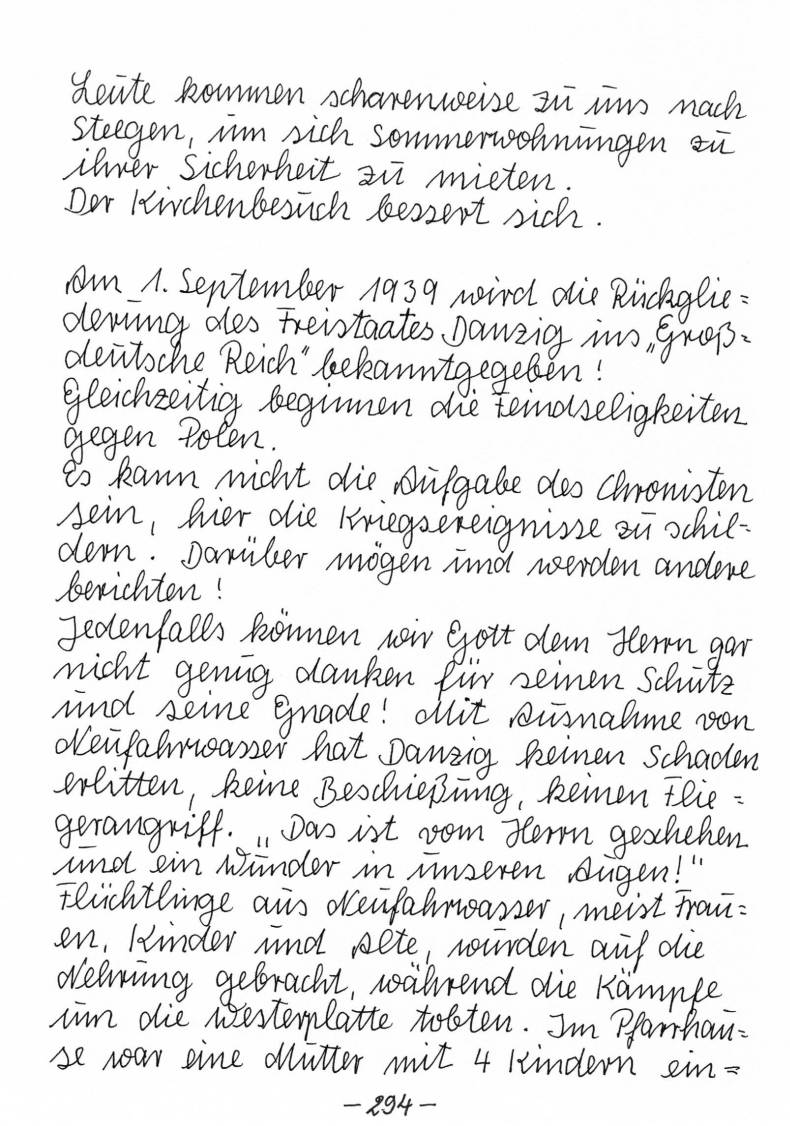 Leute kommen scharenweise zu uns nach
Steegen, um sich Sommerwohnungen zu
ihrer Sicherheit zu mieten.
Der Kirchenbesuch bessert sich.
Am 1. September 1939 wird die Rückglie=
derung des Freistaates Danzig ins „Groß=
deutsche Reich" bekanntgegeben!
Gleichzeitig beginnen die Feindseligkeiten
gegen Polen.
Es kann nicht die Aufgabe des Chronisten
sein, hier die Kriegsereignisse zu schil=
dern. Darüber mögen und werden andere
berichten!
Jedenfalls können wir Gott dem Herrn gar
nicht genug danken für seinen Schutz
und seine Gnade! Mit Ausnahme von
Neufahrwasser hat Danzig keinen Schaden
erlitten, keine Beschießung, keinen Flie=
gerangriff. „Das ist vom Herrn geschehen
und ein Wunder in unseren Augen!"
Flüchtlinge aus Neufahrwasser, meist Frau=
en, Kinder und Alte, wurden auf die
Nehrung gebracht, während die Kämpfe
um die Westerplatte tobten. Im Pfarrhau=
se war eine Mutter mit 4 Kindern ein=
- 294 -